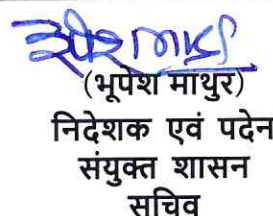 (भूपेश माथुर)
निदेशक एवं पदेन
संयुक्त शासन
सचिव